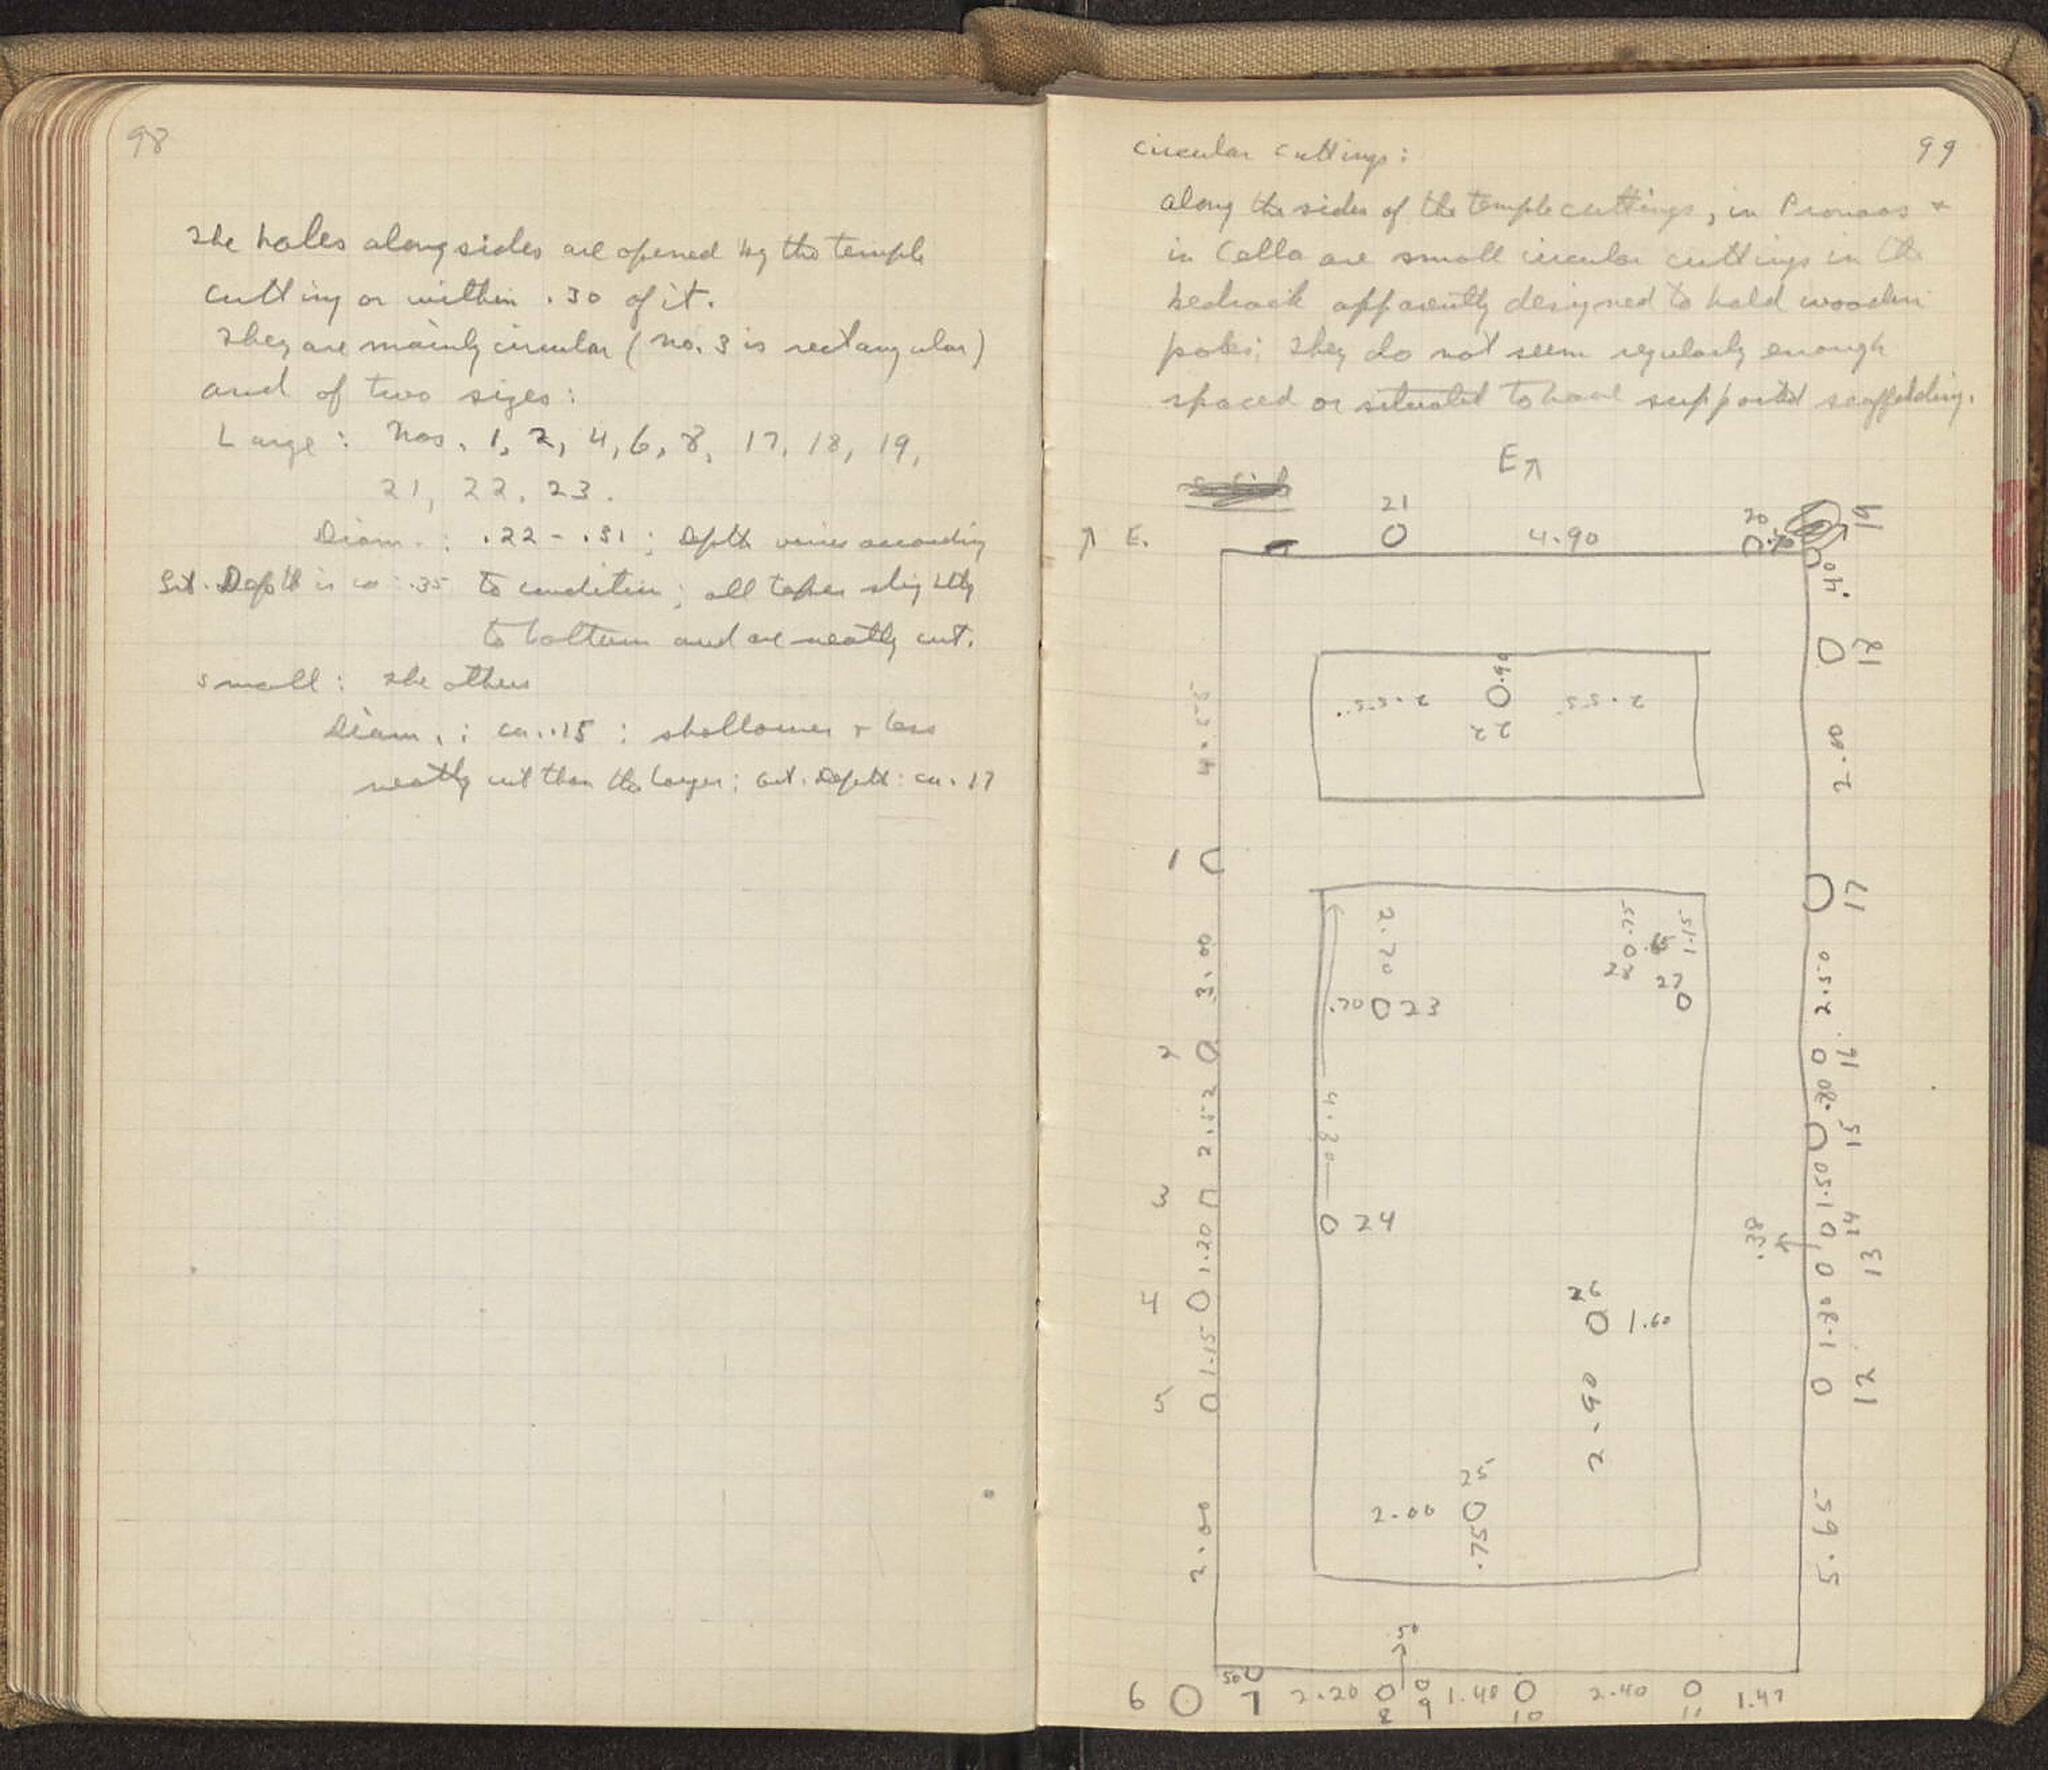 98
The holes along sides are opened by the temple
cutting or within .30 of it.
They are mainly circular (no. 3 is rectangular)
and of two sizes:
Large: Nos. 1, 2, 4, 6, 8, 17, 18, 19,
21, 22, 23.
Diam.: .22 - .31; Depth varies according
Gtt. Depth is ca. .35 to condition; all taper slightly
to bottom and are neatly cut.
small: The others
Diam.: ca. .15; shallower + less
neatly cut than the larger; Gtt. Depth: ca. 17
99
circular cuttings:
along the sides of the temple cuttings, in Pronaos +
in Cella are small circular cuttings in the
bedrock apparently designed to hold wooden
poles; They do not seem regularly enough
spaced or situated to have supported scaffolding.
E
E.
21
4.90
20
.70
19
.40
18
4.55
2.55
.90
22
2.55
2.00
1
17
3.00
2.70
.75
1.15
28
27
2.50
.70 23
2
16
.80
2.52
4.80
15
3
1.50
24
14
1.20
.38
13
4
26
1.60
1.80
1.15
12
5
2.90
25
2.00
.75
2.00
5.65
.50
6
.50
7
2.20
8
9
1.40
10
2.40
11
1.47